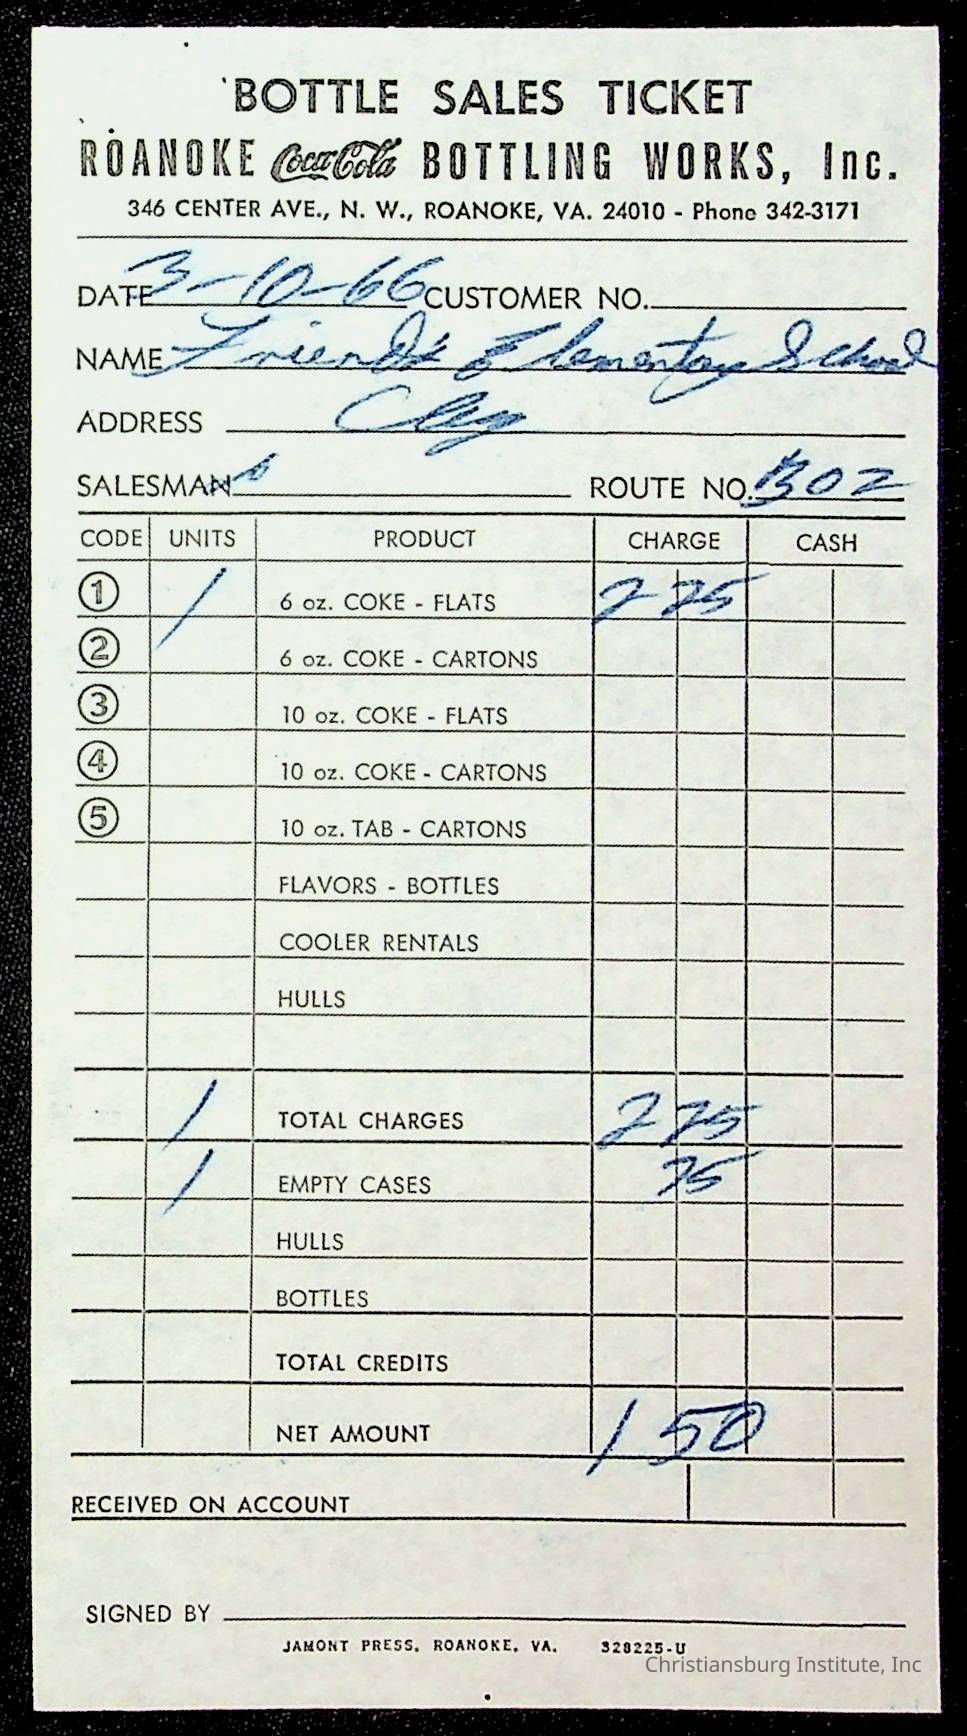 BOTTLE SALES TICKET
ROANOKE Coca-Cola BOTTLING WORKS, Inc.
346 CENTER AVE., N. W., ROANOKE, VA. 24010 - Phone 342-3171
DATE 3-10-66 CUSTOMER NO.
NAME Friends Elementary School
ADDRESS
SALESMAN ROUTE NO. 302
CODE UNITS PRODUCT CHARGE CASH
1 1 6 oz. COKE - FLATS 2 25
2 6 oz. COKE - CARTONS
3 10 oz. COKE - FLATS
4 10 oz. COKE - CARTONS
5 10 oz. TAB - CARTONS
FLAVORS - BOTTLES
COOLER RENTALS
HULLS
1 TOTAL CHARGES 2 25
1 EMPTY CASES 75
HULLS
BOTTLES
TOTAL CREDITS
NET AMOUNT 1 50
RECEIVED ON ACCOUNT
SIGNED BY
JAMONT PRESS, ROANOKE, VA. 328225-U
Christiansburg Institute, Inc